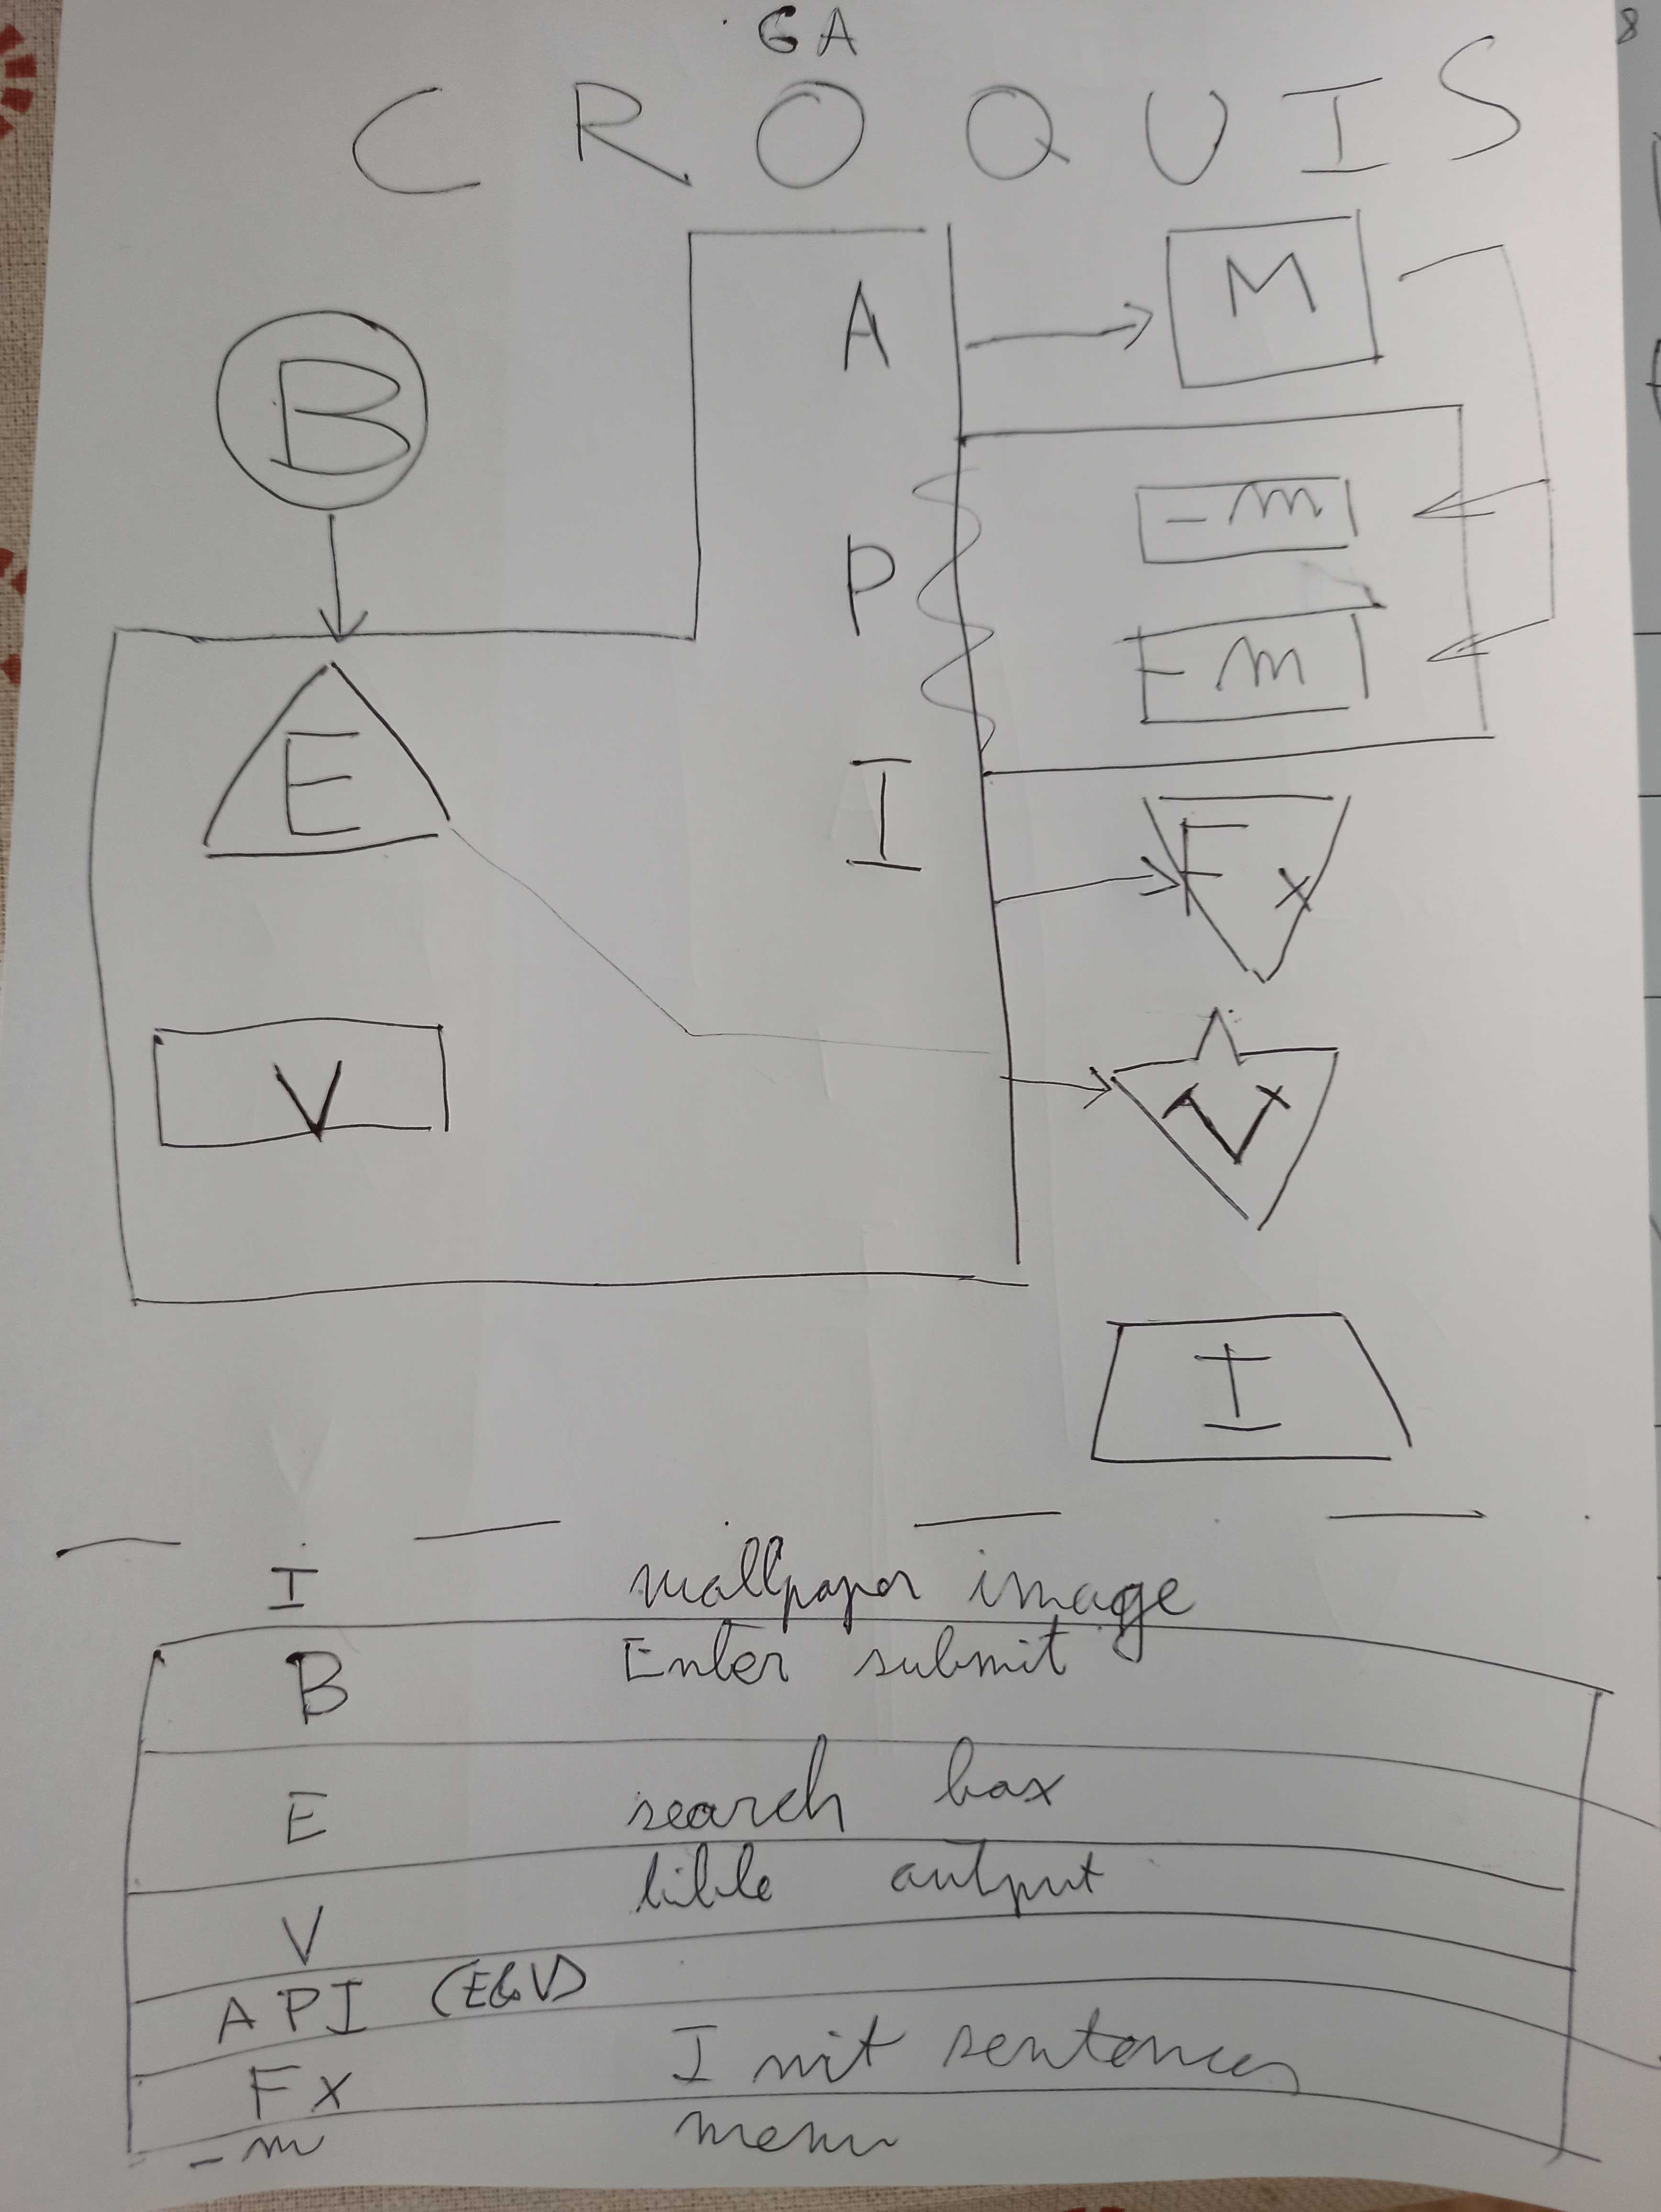 GA
CROQUIS
A
M
B
- m
P
- m
E
I
Fx
V
V
I
I wallpaper image
B Enter submit
E search box
V bible output
API (E&V)
Fx Init sentences
- m menu